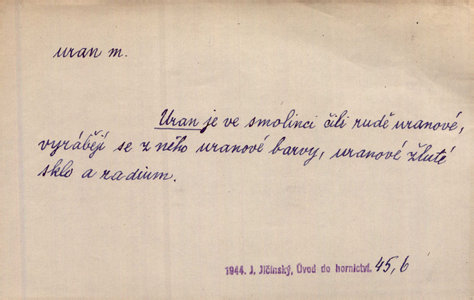 uran m.
Uran je ve smolinci čili rudě uranové,
vyrábějí se z něho uranové barvy, uranové žluté
sklo a radium.
1944. J. Jičínský, Úvod do hornictví. 45,6